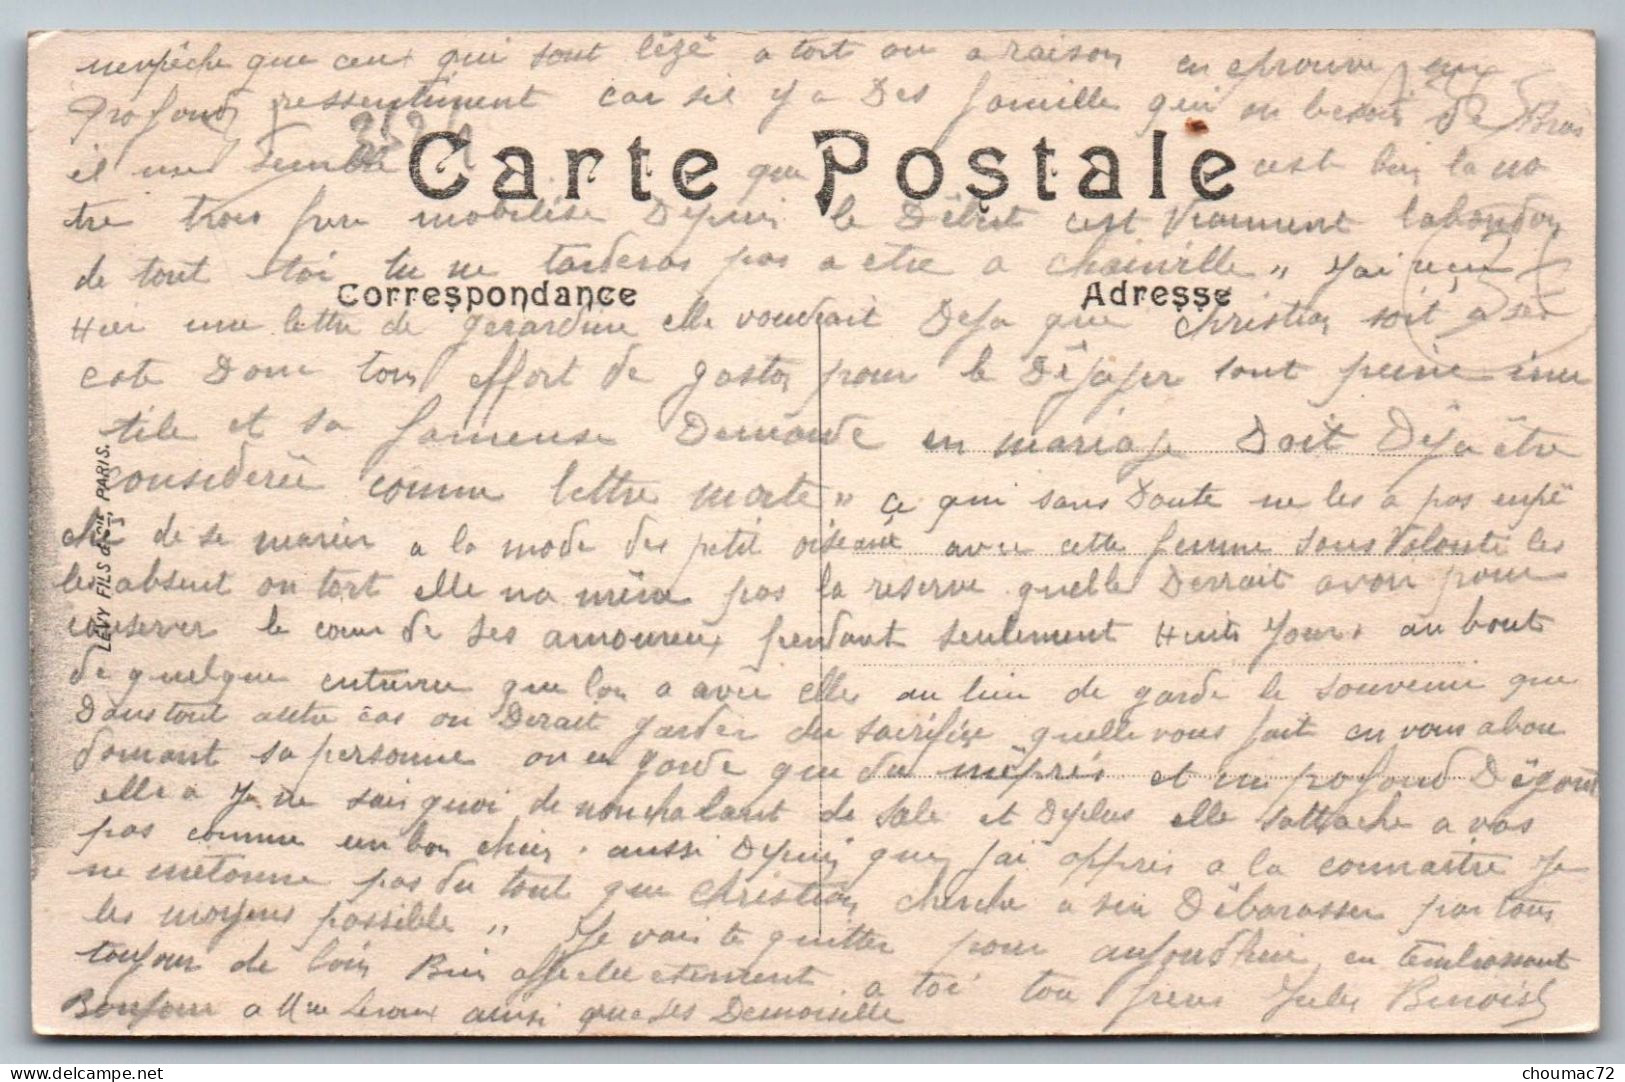 nenpêche que ceux qui sont lézé a tort ou a raison en éprouve un
profond ressentiment car sil y a Des famille qui on besoin de Bras
il me semble que cest bien la no
Carte Postale
tre trois free mobilise Depuis le Début cest Vraiment labandon
de tout toi tu ne tarderas pas a etre a chainville " J'ai reçu
Correspondance
Adresse
Hier une lettre de gerardine elle voudrait Deja que Christian soit a ses
cote Donc tous effort de gaston pour le Dégager sont peine inu
tile et sa fameuse Demande en mariage Doit Déja être
considerée comme lettre morte " ce qui sans Doute ne les a pas enpê
ché de se marier a la mode des petit oiseau avec cette femme sans Volonté les
les absent on tort elle na même pas la reserve quelle Devrait avoir pour
conserver le cœur de ses amoureux pendant seulement Huit Jours au bout
de quelque entrevue que lon a avec elle au lieu de garde le souvenir que
Dans tout autre cas on Devait garder du sacrifice quelle vous fait en vous abon
donnant sa personne on en garde que du mépris et un profond Dégout
elle a Je ne sais quoi de nonchalant de sale et Deplus elle sattache a vos
pas comme un bon chien . aussi Depuis que jai appris a la connaitre Je
ne métonne pas du tout que Christian cherche a sen Débarasser par tous
les moyens possible " Je vais te quitter pour aujourdhui en tembrassant
toujour de loin Bien affectueusement a toi ton frere Jules Benoist
Bonjour a Mme Leroux ainsi que ses Demoiselle
LEVY FILS & CIE, PARIS.
choumac72